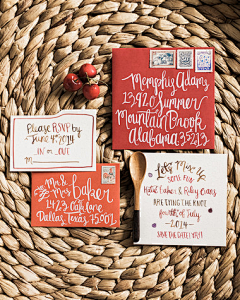 Memphis Adams
1392 Summer
Mountain Brook
Alabama 35213
Please RSVP by
June 4th 2014
IN or OUT
M
Mr &
Mrs Baker
1423 Oaklane
Dallas, Texas 75001
Let's Mix Up
SOME FUN
Katie Bakers & Riley Owens
ARE TYING THE KNOT
fourth of July
2014
SAVE THE DATE